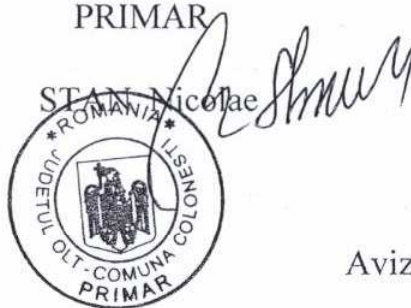 PRIMAR
STAN Nicolae
*ROMANIA*
JUDETUL OLT - COMUNA COLONESTI
PRIMAR
Aviz